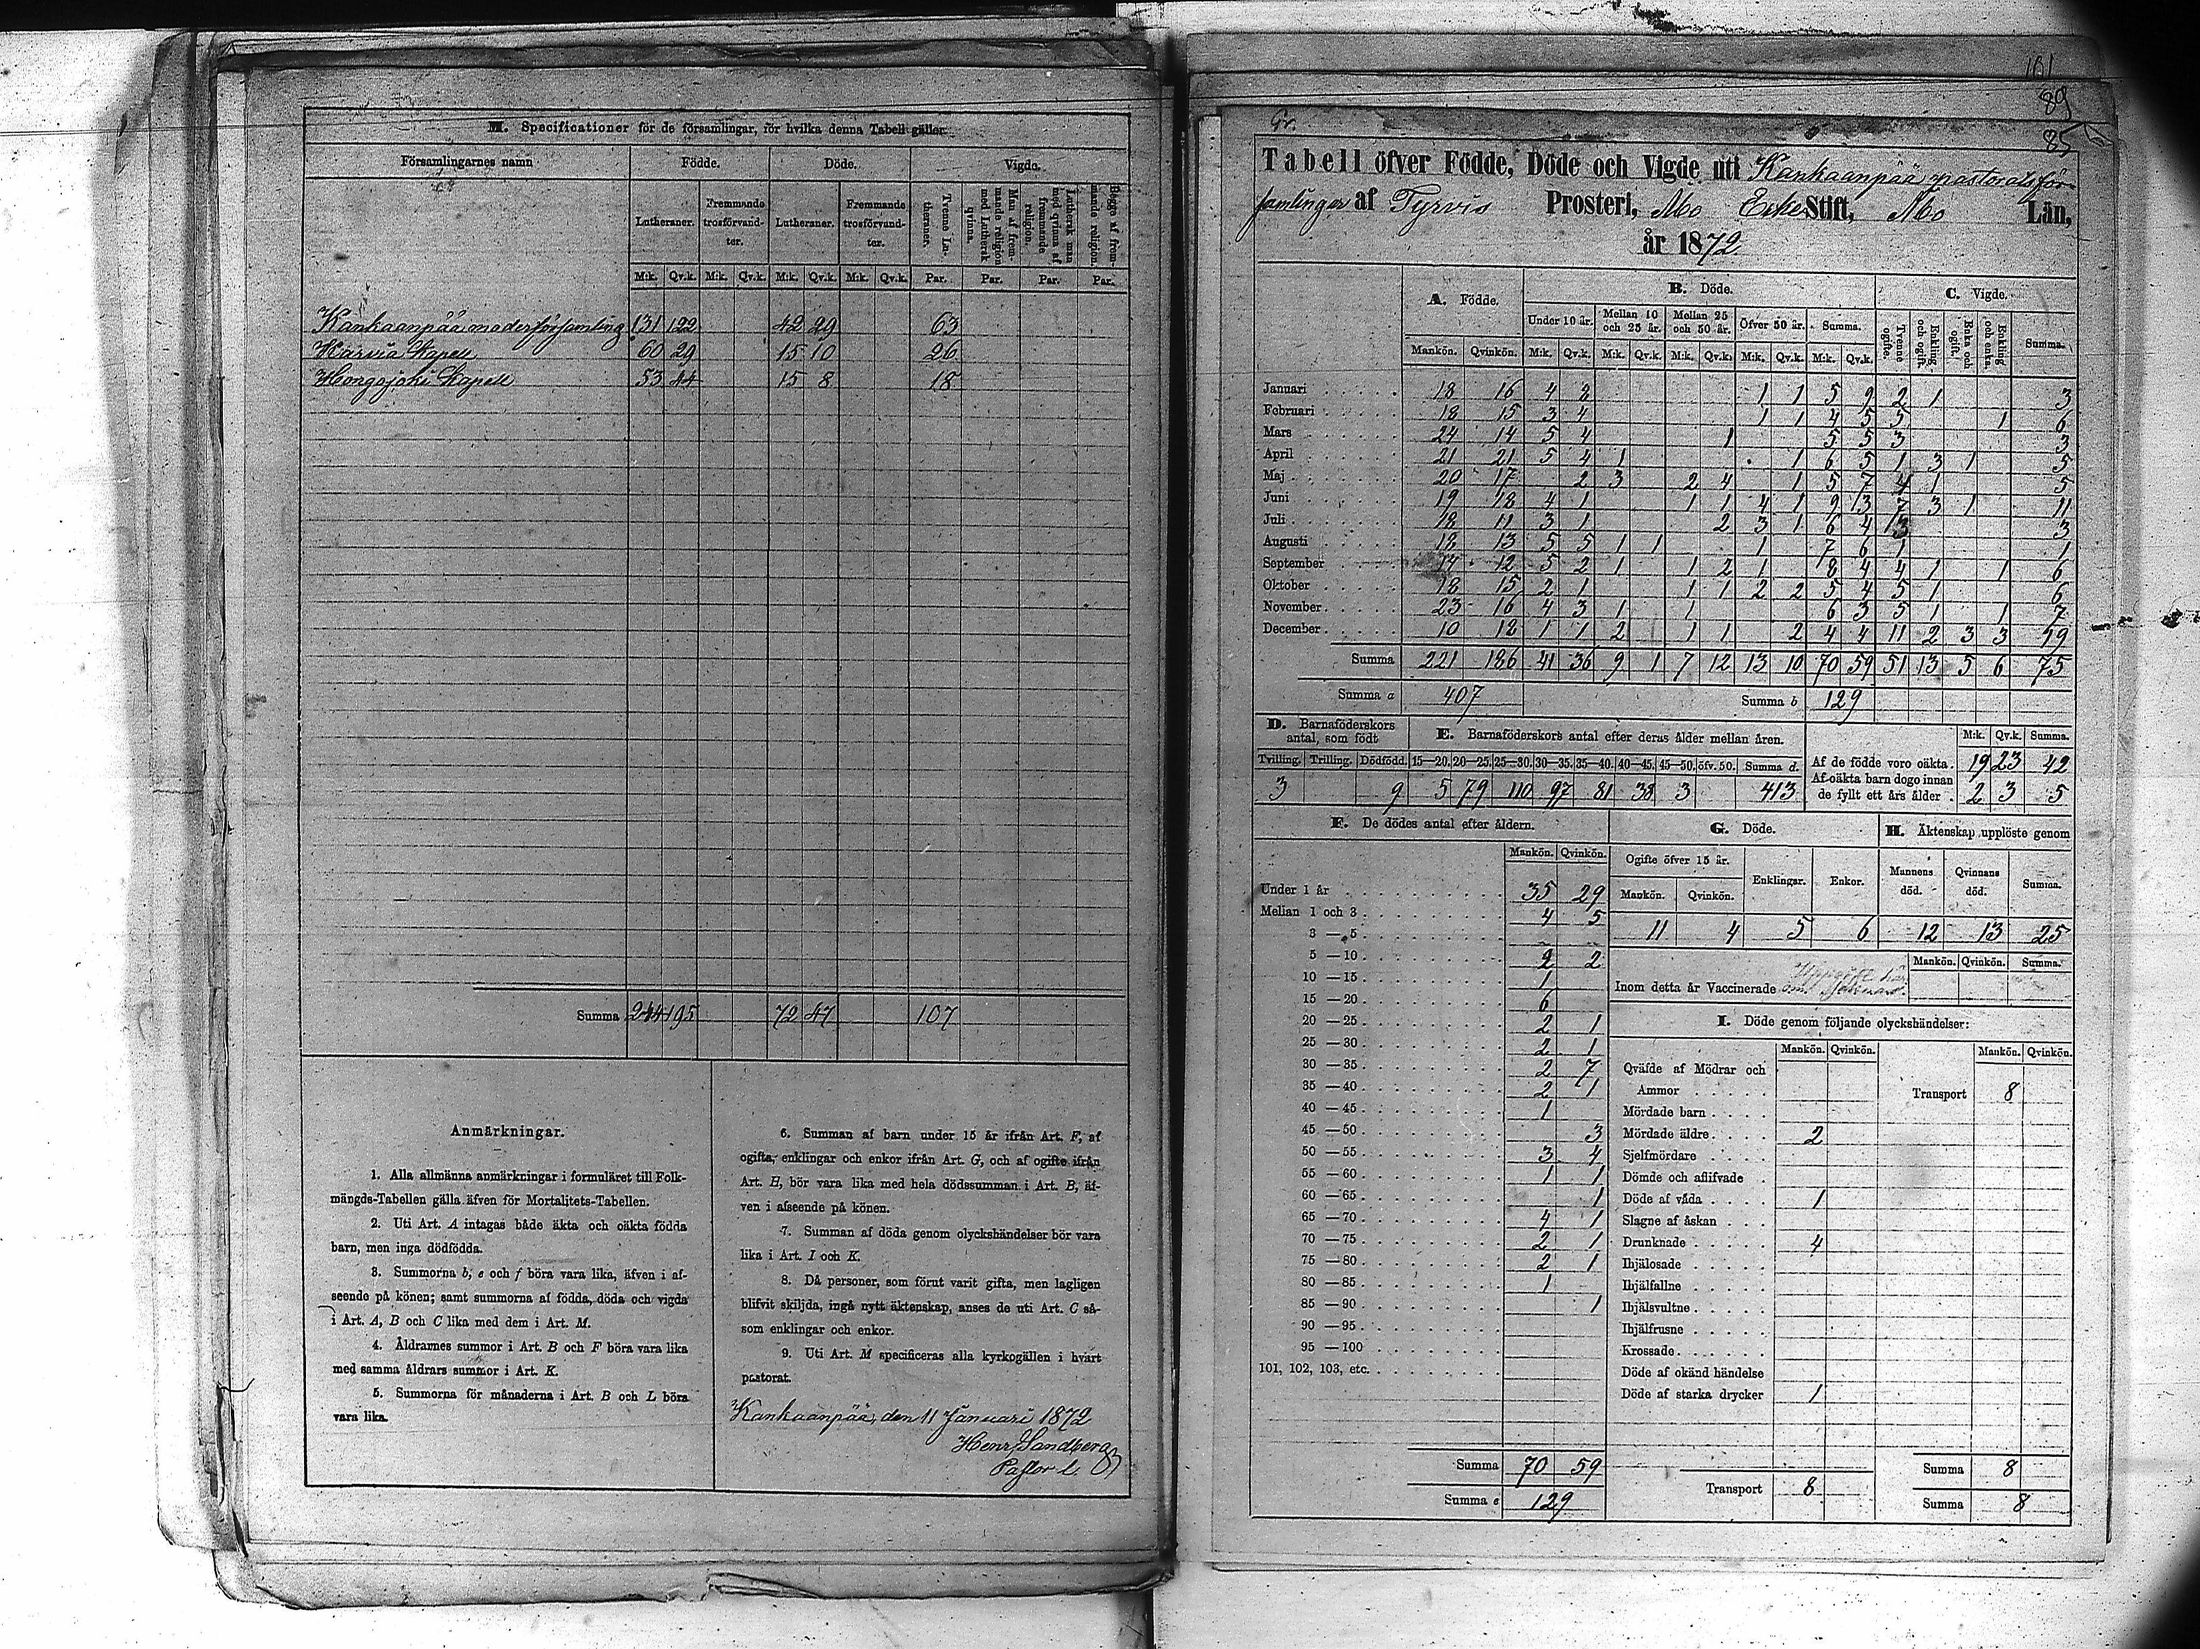 M. Specificationer för de församlingar, för hvilka denna Tabell gäller.
Församlingarnes namn Födde. Döde. Vigde.
Lutheraner. Fremmande trosförvandter. Lutheraner. Fremmande trosförvandter. Tvenne Lutheraner. Man af fremmande religion med Luthersk qvinna. Luthersk man med qvinna af fremmande religion. Begge af fremmande religion.
M:k. Qv.k. M:k. Qv.k. M:k. Qv.k. M:k. Qv.k. Par. Par. Par. Par.
Kankaanpää moderförsamling 131 122 42 29 63
Karvia Kapell 60 29 15 10 26
Hongojoki Kapell 53 44 15 8 18
Summa 244 195 72 47 107
Anmärkningar.
1. Alla allmänna anmärkningar i formuläret till Folk-
mängds-Tabellen gälla äfven för Mortalitets-Tabellen.
2. Uti Art. A intagas både äkta och oäkta födda
barn, men inga dödfödda.
3. Summorna b, e och f böra vara lika, äfven i af-
seende på könen; samt summorna af födda, döda och vigda
i Art. A, B och C lika med dem i Art. M.
4. Åldrarnes summor i Art. B och F böra vara lika
med samma åldrars summor i Art. K.
5. Summorna för månaderna i Art. B och L böra
vara lika.
6. Summan af barn under 15 år ifrån Art. F, af
ogifta, enklingar och enkor ifrån Art. G, och af ogifte ifrån
Art. H, bör vara lika med hela dödssumman i Art. B, äf-
ven i afseende på könen.
7. Summan af döda genom olyckshändelser bör vara
lika i Art. I och K.
8. Då personer, som förut varit gifta, men lagligen
blifvit skiljda, ingå nytt äktenskap, anses de uti Art. C så-
som enklingar och enkor.
9. Uti Art. M specificeras alla kyrkogällen i hvart
pastorat.
Kankaanpää, den 11 Januari 1872
Henr. Sandberg
Pastor l.
101
89
85
Gr.
Tabell öfver Födde, Döde och Vigde uti Kankaanpää pastorats för-
samlingar af Tyrvis Prosteri, Åbo Erke Stift, Åbo Län,
år 1872.
A. Födde. B. Döde. C. Vigde.
Under 10 år. Mellan 10 och 25 år. Mellan 25 och 50 år. Öfver 50 år. Summa. Tvenne ogifte. Enkling och ogift. Enka och ogift. Enkling och enka. Summa.
Mankön. Qvinkön. M:k. Qv.k. M:k. Qv.k. M:k. Qv.k. M:k. Qv.k. M:k. Qv.k.
Januari 18 16 4 2 1 1 5 9 2 1 3
Februari 18 15 3 4 1 1 4 5 5 1 6
Mars 24 14 5 4 1 5 5 3 3
April 21 21 5 4 1 1 6 5 1 3 1 5
Maj 20 17 2 3 2 4 1 5 7 4 1 5
Juni 19 18 4 1 1 1 4 1 9 13 7 3 1 11
Juli 18 11 3 1 2 3 1 6 4 3 3
Augusti 12 13 5 5 1 1 1 7 6 1 1
September 17 12 5 2 1 1 2 1 8 4 4 1 1 6
Oktober 18 15 2 1 1 1 2 2 5 4 5 1 6
November 23 16 4 3 1 1 6 3 5 1 1 7
December 10 12 1 1 2 1 1 2 4 4 11 2 3 3 19
Summa 221 186 41 36 9 1 7 12 13 10 70 59 51 13 5 6 75
Summa a 407 Summa b 129
D. Barnaföderskors antal, som födt E. Barnaföderskors antal efter deras ålder mellan åren. M:k. Qv.k. Summa.
Tvilling. Trilling. Dödfödd. 15—20. 20—25. 25—30. 30—35. 35—40. 40—45. 45—50. öfv. 50. Summa d.
3 9 5 79 110 97 81 38 3 413
Af de födde voro oäkta. 19 23 42
Af oäkta barn dogo innan
de fyllt ett års ålder. 2 3 5
F. De dödes antal efter åldern.
Mankön. Qvinkön.
Under 1 år 35 29
Mellan 1 och 3 4 5
3 — 5
5 — 10 2 2
10 — 15 1
15 — 20 6
20 — 25 2 1
25 — 30 2 1
30 — 35 2 7
35 — 40 2 1
40 — 45 1
45 — 50 3
50 — 55 3 4
55 — 60 1 1
60 — 65 1
65 — 70 4 1
70 — 75 2 1
75 — 80 2 1
80 — 85 1
85 — 90 1
90 — 95
95 — 100
101, 102, 103, etc.
Summa 70 59
Summa e 129
G. Döde. H. Äktenskap upplöste genom
Ogifte öfver 15 år. Enklingar. Enkor. Mannens död. Qvinnans död. Summa.
Mankön. Qvinkön.
11 4 5 6 12 13 25
Mankön. Qvinkön. Summa.
Inom detta år Vaccinerade
I. Döde genom följande olyckshändelser:
Mankön. Qvinkön. Mankön. Qvinkön.
Qväfde af Mödrar och
Ammor Transport 8
Mördade barn
Mördade äldre 2
Sjelfmördare
Dömde och aflifvade
Döde af våda 1
Slagne af åskan
Drunknade 4
Ihjälosade
Ihjälfallne
Ihjälsvultne
Ihjälfrusne
Krossade
Döde af okänd händelse
Döde af starka drycker 1
Transport 8
Summa 8
Summa 8